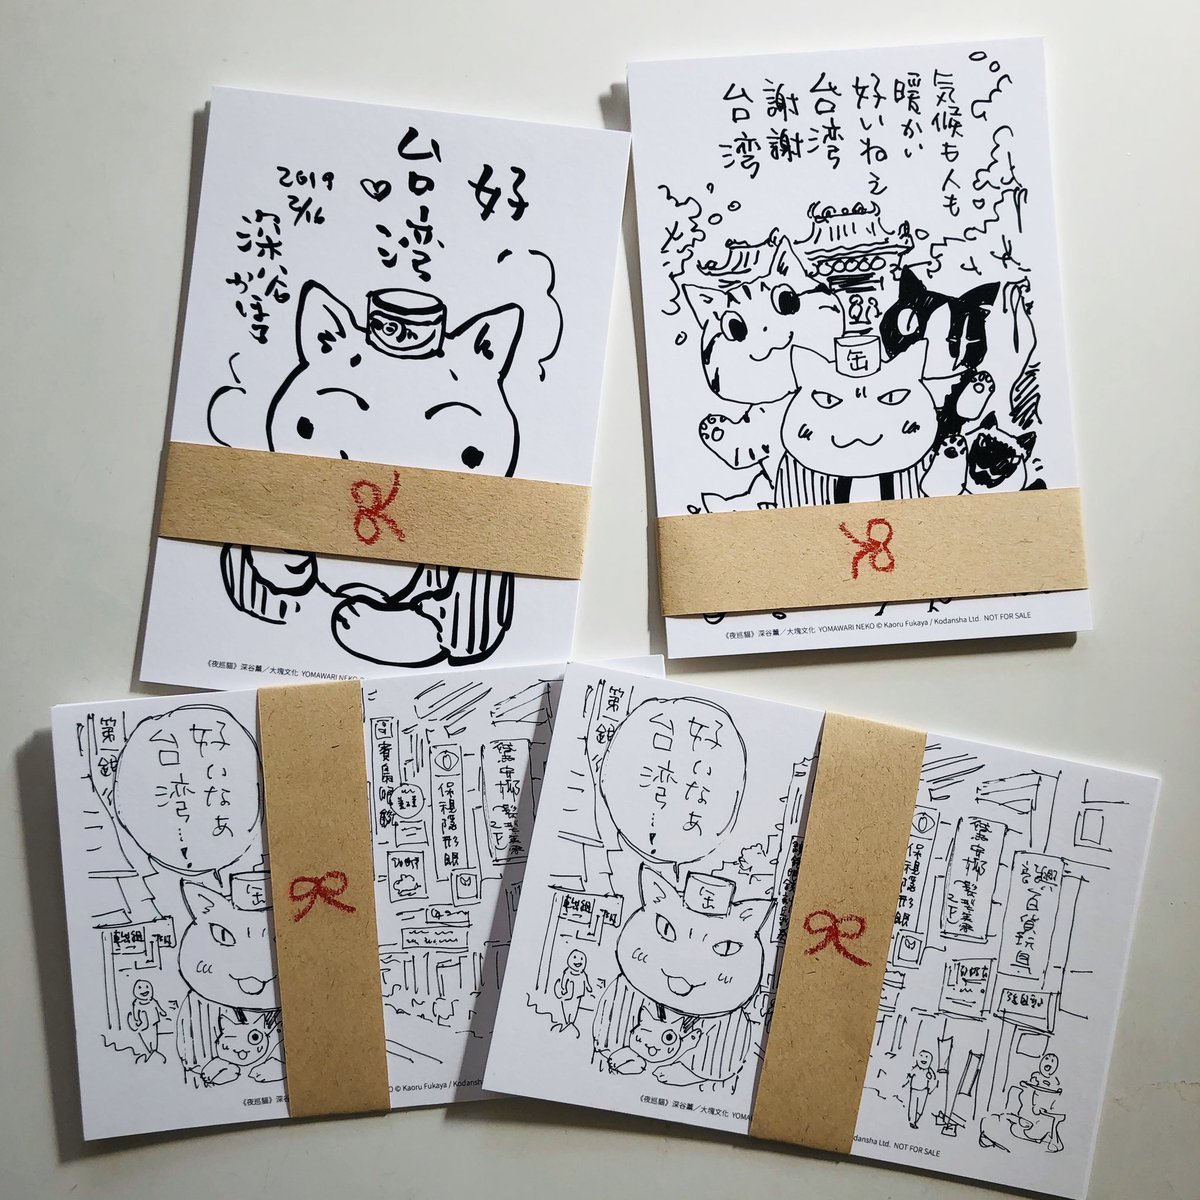 好
台湾
2019
2/16
深谷
かほる
《夜巡貓》深谷薰／大塊文化 YOMAWARI NEKO ©
気候も人も
暖かい
好いねぇ
台湾
謝謝
台湾
缶
《夜巡貓》深谷薰／大塊文化 YOMAWARI NEKO © Kaoru Fukaya / Kodansha Ltd. NOT FOR SALE
好いなぁ
台湾…!
第一銀
缶
寶島眼鏡
保視隱形眼
《夜巡貓》
© Kaoru Fukaya / Kodansha
好いなぁ
台湾…!
第一銀
缶
保視隱形眼
百貨玩具
《夜巡貓》深谷薰／大塊文化 YOMAW
dansha Ltd. NOT FOR SALE